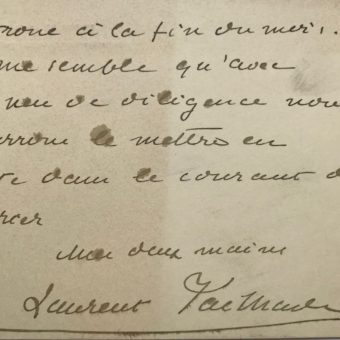 à la fin du mois.
me semble qu'avec
de diligence nou
le mettre en
dans le courant d
Mes deux mains
Laurent Tailhade